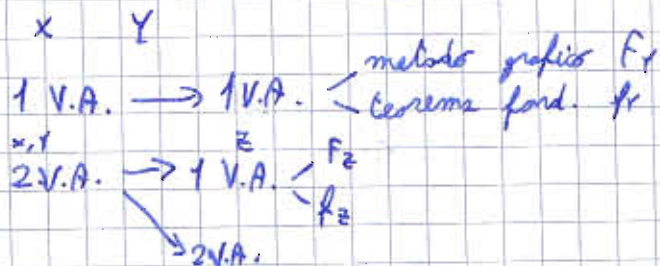 X Y
1 V.A. → 1 V.A. metodo grafico F_Y
teorema fond. f_Y
X, Y Z
2 V.A. → 1 V.A. F_Z
f_Z
2 V.A.